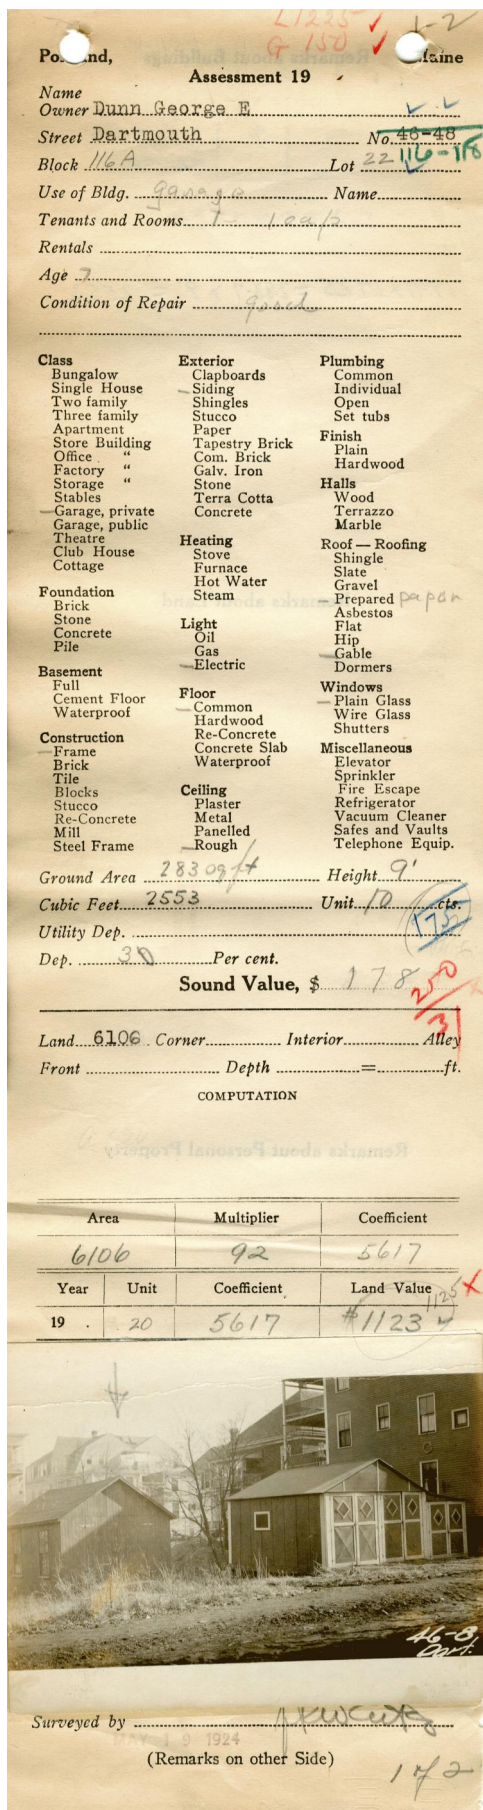 L1225 ✓ 1-2
G 150 ✓
Portland, Maine
Assessment 19
Name
Owner Dunn George E
Street Dartmouth No. 46-48
Block 116A Lot 22 116-118
Use of Bldg. garage Name
Tenants and Rooms 1 - 1 cap
Rentals
Age 7
Condition of Repair good
Class
Bungalow
Single House
Two family
Three family
Apartment
Store Building
Office "
Factory "
Storage "
Stables
Garage, private
Garage, public
Theatre
Club House
Cottage
Foundation
Brick
Stone
Concrete
Pile
Basement
Full
Cement Floor
Waterproof
Construction
Frame
Brick
Tile
Blocks
Stucco
Re-Concrete
Mill
Steel Frame
Exterior
Clapboards
Siding
Shingles
Stucco
Paper
Tapestry Brick
Com. Brick
Galv. Iron
Stone
Terra Cotta
Concrete
Heating
Stove
Furnace
Hot Water
Steam
Light
Oil
Gas
Electric
Floor
Common
Hardwood
Re-Concrete
Concrete Slab
Waterproof
Ceiling
Plaster
Metal
Panelled
Rough
Plumbing
Common
Individual
Open
Set tubs
Finish
Plain
Hardwood
Halls
Wood
Terrazzo
Marble
Roof — Roofing
Shingle
Slate
Gravel
Prepared paper
Asbestos
Flat
Hip
Gable
Dormers
Windows
Plain Glass
Wire Glass
Shutters
Miscellaneous
Elevator
Sprinkler
Fire Escape
Refrigerator
Vacuum Cleaner
Safes and Vaults
Telephone Equip.
Ground Area 283 sq ft Height 9'
Cubic Feet 2553 Unit 10 cts.
175
Utility Dep.
Dep. 30 Per cent.
Sound Value, $ 178
250
Land 6106 Corner Interior Alley
Front Depth = ft.
COMPUTATION
Remarks about Personal Property
Area Multiplier Coefficient
6106 92 5617
Year Unit Coefficient Land Value
1125
19 . 20 5617 #1123
46-8
Dart.
Surveyed by
MAY 19 1924
(Remarks on other Side)
1 of 2